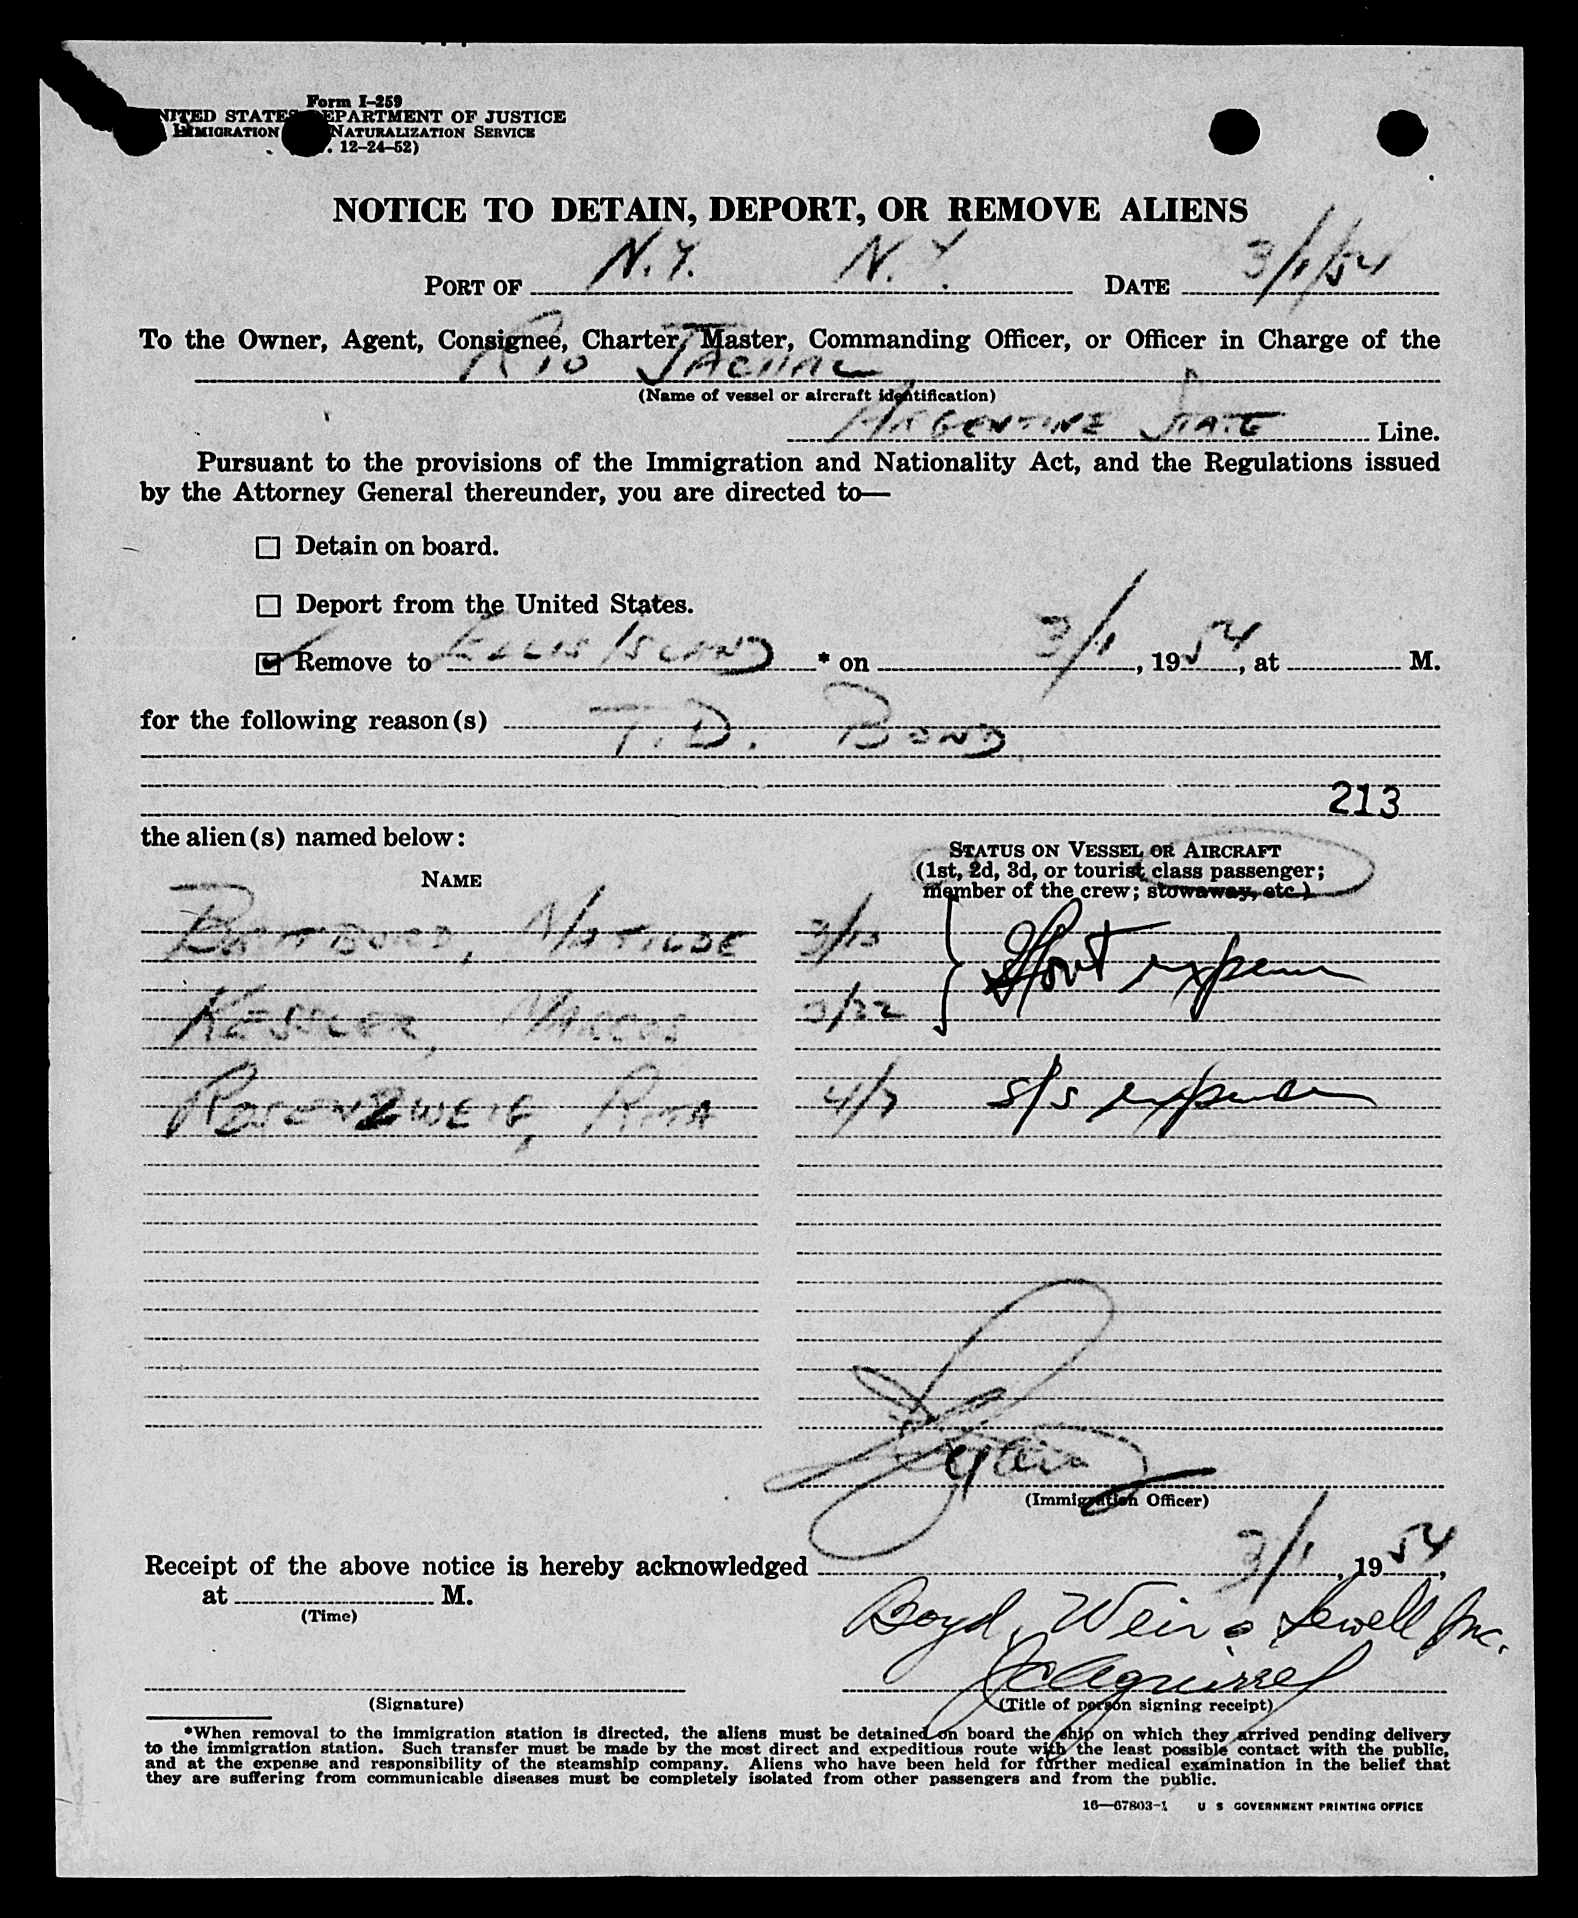 Form I-259
UNITED STATES DEPARTMENT OF JUSTICE
IMMIGRATION NATURALIZATION SERVICE
12-24-52)
NOTICE TO DETAIN, DEPORT, OR REMOVE ALIENS
PORT OF N.Y. N.Y. DATE 3/1/54
To the Owner, Agent, Consignee, Charter, Master, Commanding Officer, or Officer in Charge of the
RIO JACHAL
(Name of vessel or aircraft identification)
ARGENTINE STATE Line.
Pursuant to the provisions of the Immigration and Nationality Act, and the Regulations issued
by the Attorney General thereunder, you are directed to—
Detain on board.
Deport from the United States.
Remove to ELLIS ISLAND * on 3/1, 1954, at M.
for the following reason(s) T.D. BOND
213
the alien(s) named below:
STATUS ON VESSEL OR AIRCRAFT
(1st, 2d, 3d, or tourist class passenger;
member of the crew; stowaway, etc.)
NAME
MATILDE 3/10
Govt expense
KESSLER, MARCOS 3/22
ROSENZWEIG, RITA 4/7 s/s expense
(Immigration Officer)
Receipt of the above notice is hereby acknowledged 3/1, 1954,
at M.
(Time)
Boyd, Weir & Sewell Inc.
(Signature)
(Title of person signing receipt)
*When removal to the immigration station is directed, the aliens must be detained on board the ship on which they arrived pending delivery
to the immigration station. Such transfer must be made by the most direct and expeditious route with the least possible contact with the public,
and at the expense and responsibility of the steamship company. Aliens who have been held for further medical examination in the belief that
they are suffering from communicable diseases must be completely isolated from other passengers and from the public.
16—67803-1 U S GOVERNMENT PRINTING OFFICE